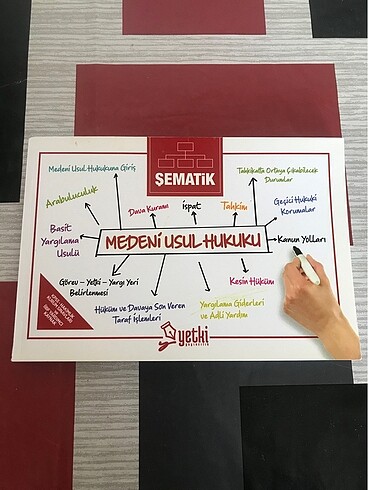 ŞEMATİK
Medeni Usul Hukukuna Giriş
Tahkikatta Ortaya Çıkabilecek
Durumlar
Arabuluculuk
Dava Kuramı
ispat
Tahkim
Geçici Hukuki
Korumalar
Basit
Yargılama
Usulü
MEDENİ USUL HUKUKU
Kanun Yolları
Görev – Yetki – Yargı Yeri
Belirlenmesi
Kesin Hüküm
Hüküm ve Davaya Son Veren
Taraf İşlemleri
Yargılama Giderleri
ve Adli Yardım
yetki
yayıncılık